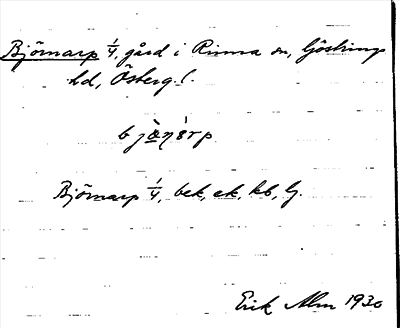 Björnarp 1/4, gård i Rinna sn, Göstrings
hd, Österg. l.
Björnarp 1/4, bek, ek, kb, G.
Erik Alm 1930